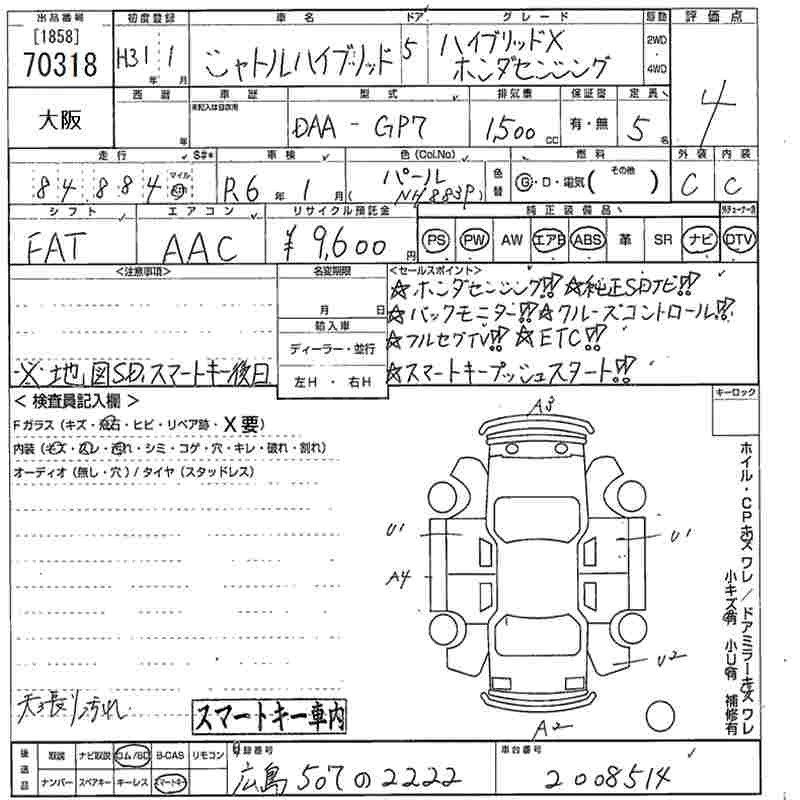 出品番号 初度登録 車名 ドア グレード 駆動 評価点
[1858]
70318 H31年 1月 シャトルハイブリッド 5 ハイブリッドX ホンダセンシング 2WD・4WD 4
大阪 西暦 年 車歴 未記入は自家用 型式 DAA-GP7 排気量 1,500cc 保証書 有・無 定員 5名
走行 84,884 マイル Km S#* 車検 R6年 1月 色(Col.No) パール (NH883P) 色替 燃料 G・D・電気( その他 ) 外装 C 内装 C
シフト FAT エアコン AAC リサイクル預託金 ¥9,600円 純正装備品 PS PW AW エアB ABS 革 SR ナビ 外チューナー含 DTV
<注意事項> 名変期限 <セールスポイント>
月 日
☆ホンダセンシング!! ☆純正SDナビ!!
☆バックモニター!! ☆クルーズコントロール!!
輸入車
☆フルセグTV!! ☆ETC!!
ディーラー・並行
※地図SD、スマートキー後日 左H・右H ☆スマートキープッシュスタート!!
<検査員記入欄> キーロック
Fガラス(キズ・飛石・ヒビ・リペア跡・X要)
内装(キズ・スレ・汚れ・シミ・コゲ・穴・キレ・破れ・割れ)
オーディオ(無し・穴)/タイヤ(スタッドレス)
A3
U1 U1
A4
U2
A2
ホイル・CPキズ ワレ/ドアミラーキズ ワレ
小キズ有 小U有 補修有
天張り汚れ
スマートキー車内
後送品 取説 ナビ取説 ロム/SD B-CAS リモコン 登録番号 車台番号
ナンバー スペアキー キーレス スマートキー 広島 507 の 2222 2008514